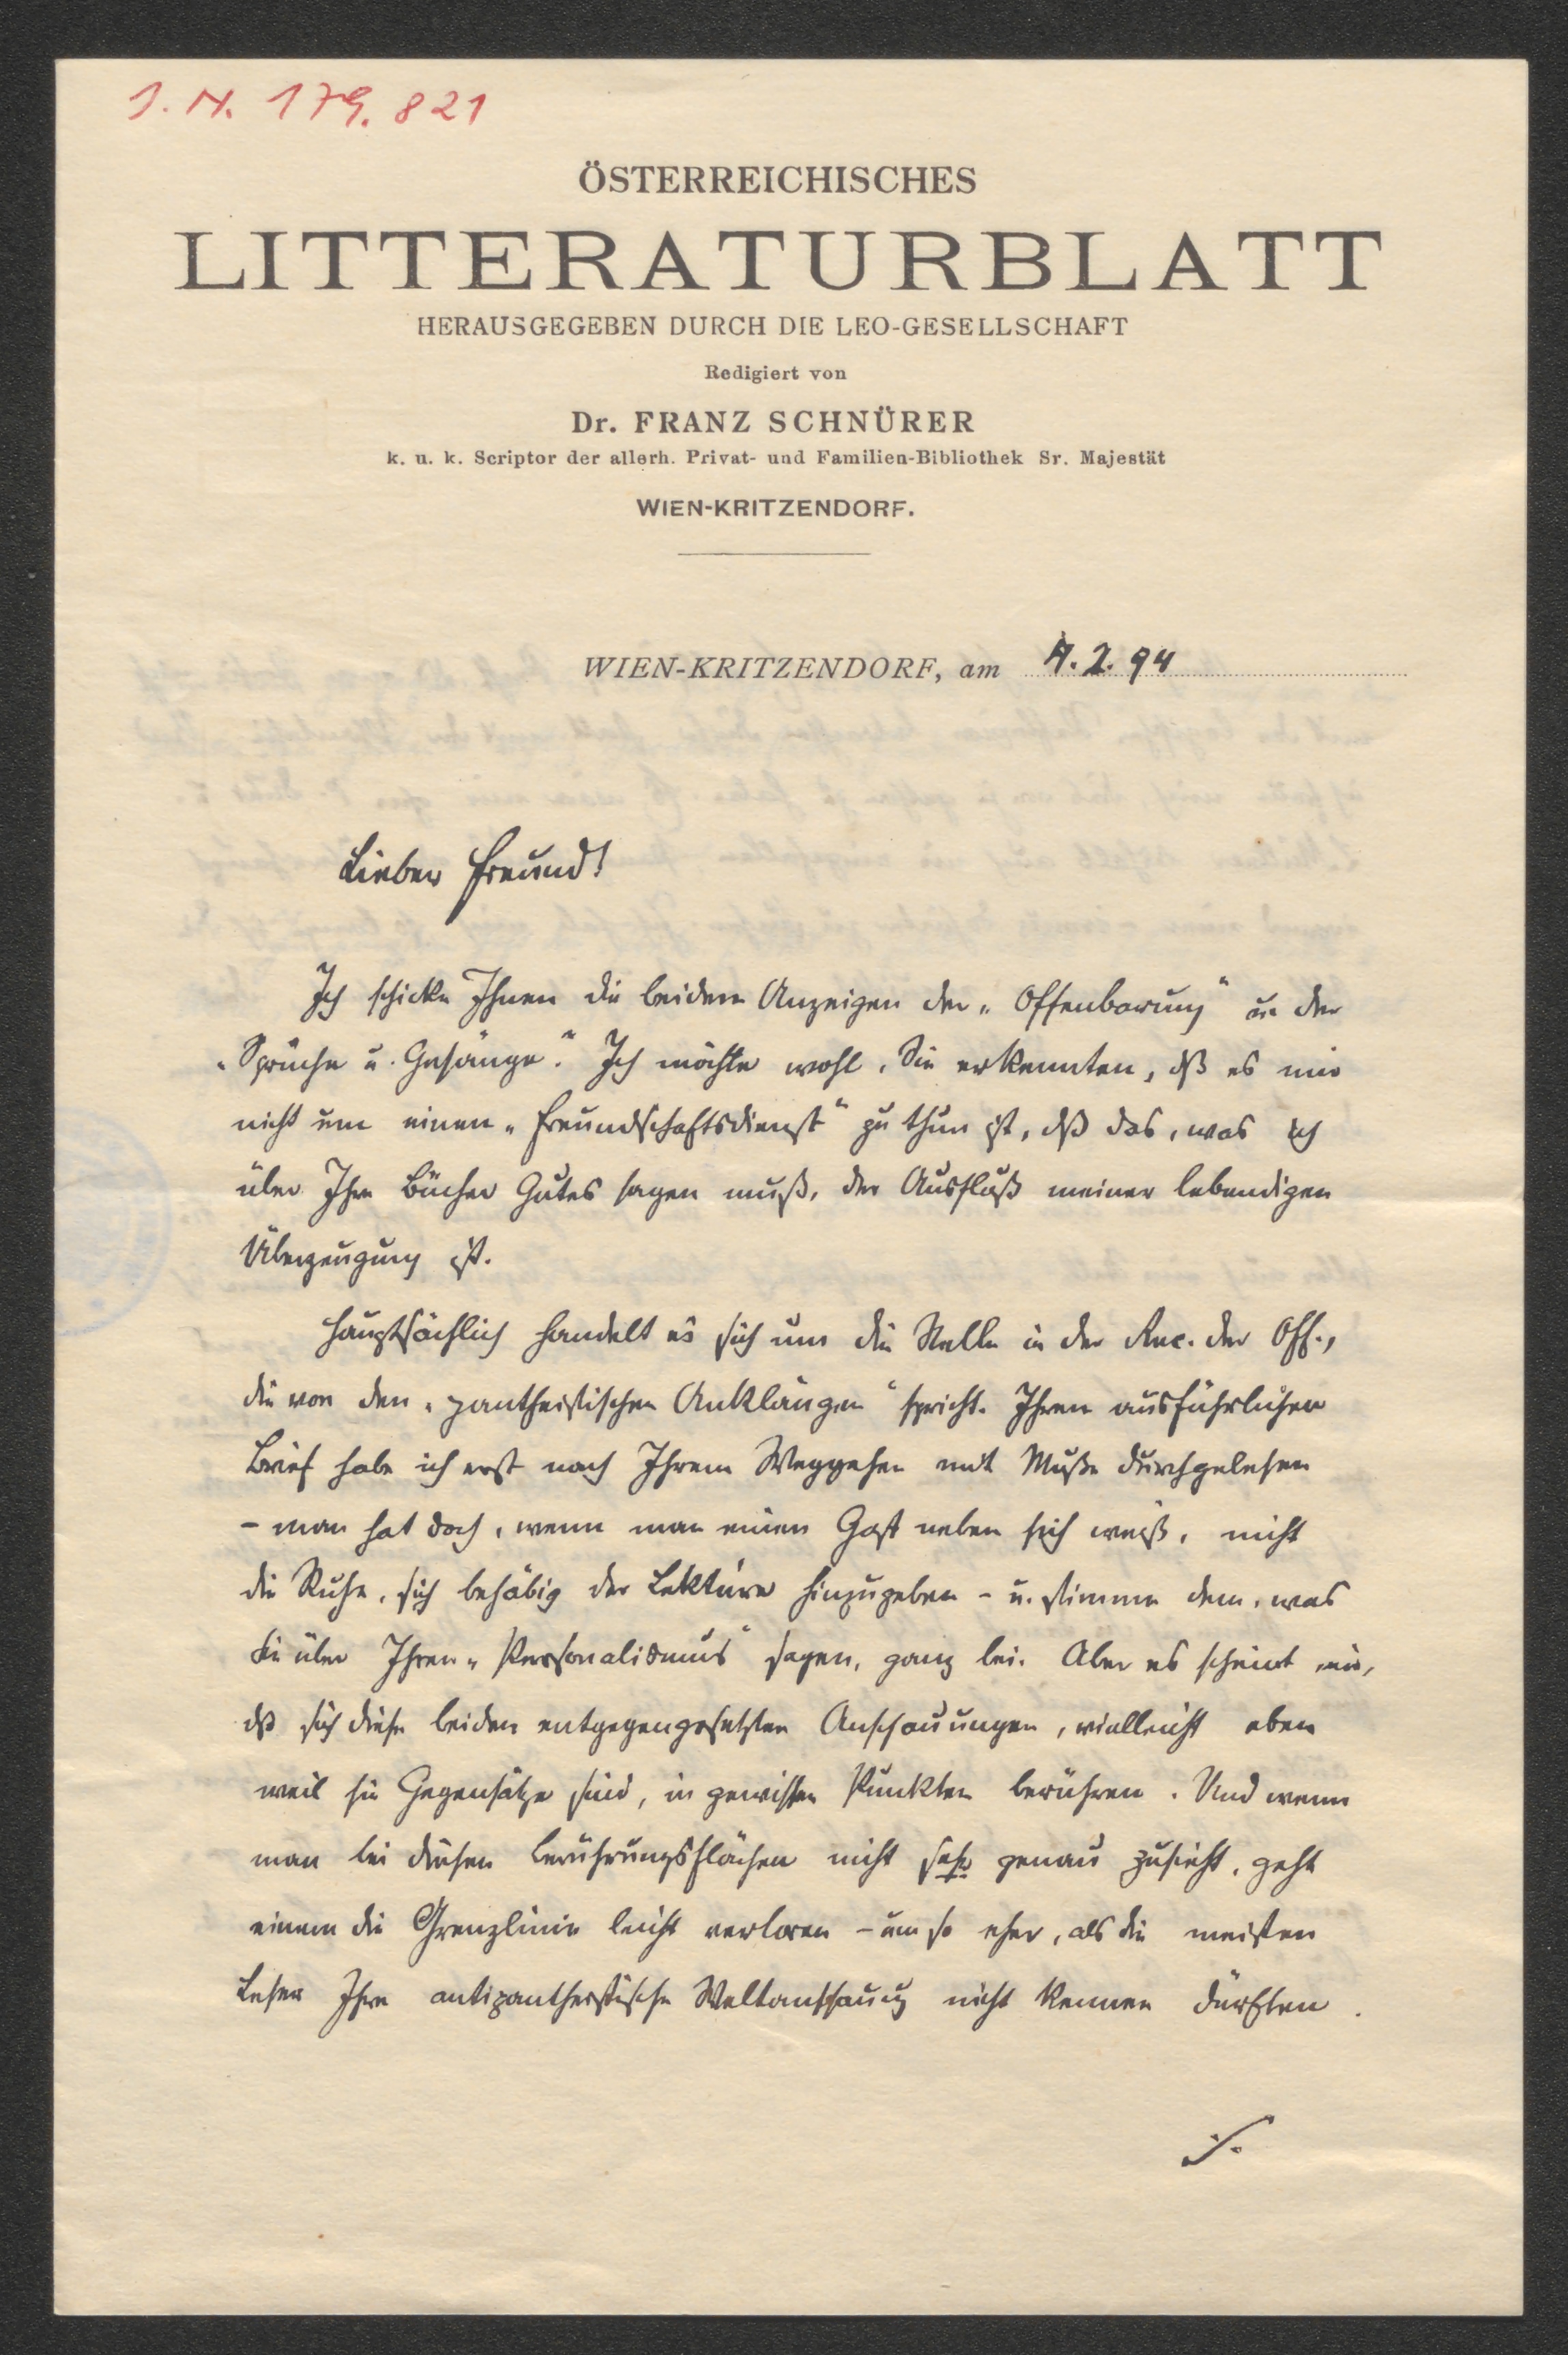 I. N. 179.821
ÖSTERREICHISCHES
LITTERATURBLATT
HERAUSGEGEBEN DURCH DIE LEO-GESELLSCHAFT
Redigiert von
Dr. FRANZ SCHNÜRER
k. u. k. Scriptor der allerh. Privat- und Familien-Bibliothek Sr. Majestät
WIEN-KRITZENDORF.
WIEN-KRITZENDORF, am 4.2.94
Lieber Freund!
Ich schicke Ihnen die beiden Anzeigen der „Offenbarung" u. der
„Sprüche u. Gesänge". Ich möchte wohl, Sie erkennten, dß es mir
nicht um einen „Freundschaftsdienst" zu thun ist, dß das, was ich
über Ihre Bücher Gutes sagen muß, der Ausfluß meiner lebendigen
Überzeugung ist.
Hauptsächlich handelt es sich um die Stelle in der Rec. der Off.,
die von den „pantheistischen Anklängen" spricht. Ihren ausführlichen
Brief habe ich erst nach Ihrem Weggehen mit Muße durchgelesen
– man hat doch, wenn man einen Gast neben sich weiß, nicht
die Ruhe, sich behäbig der Lektüre hinzugeben – u. stimme dem, was
Sie über Ihren „Personalismus" sagen, ganz bei. Aber es scheint mir,
dß sich diese beiden entgegengesetzten Anschauungen, vielleicht eben
weil sie Gegensätze sind, in gewissen Punkten berühren. Und wenn
man bei diesen Berührungsflächen nicht sehr genau zusieht, geht
einem die Grenzlinie leicht verloren – um so eher, als die meisten
Leser Ihre antipantheistische Weltanschauung nicht kennen dürften.
./.